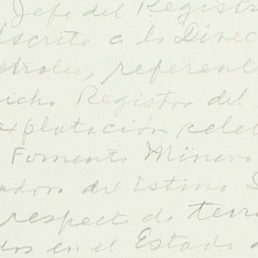 Jefe del Registr
dscrito a la Direc
etroleo, referent
icho Registro del
explotación celeb
Fomento Minero
ador del Istmo S
respecto de terre
dos en el Estado d